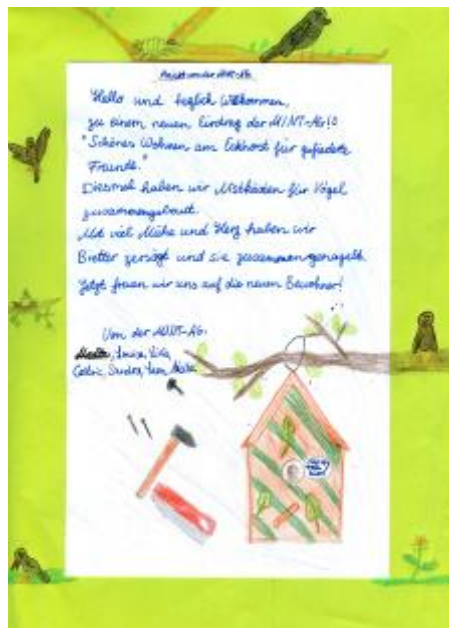 Hallo und herzlich Willkommen,
zu einem neuen Eindrag der MINT-AG!:)
"Schönes Wohnen am Eckhorst für gefiederte
Freunde."
Diesmal haben wir Nistkästen für Vögel
zusammengebaut.
Mit viel Mühe und Herz haben wir
Bretter zersägt und sie zusammengenagelt.
Jetzt freuen wir uns auf die neuen Bewohner!
Von der MINT-AG:
Louisa,
Cedric,